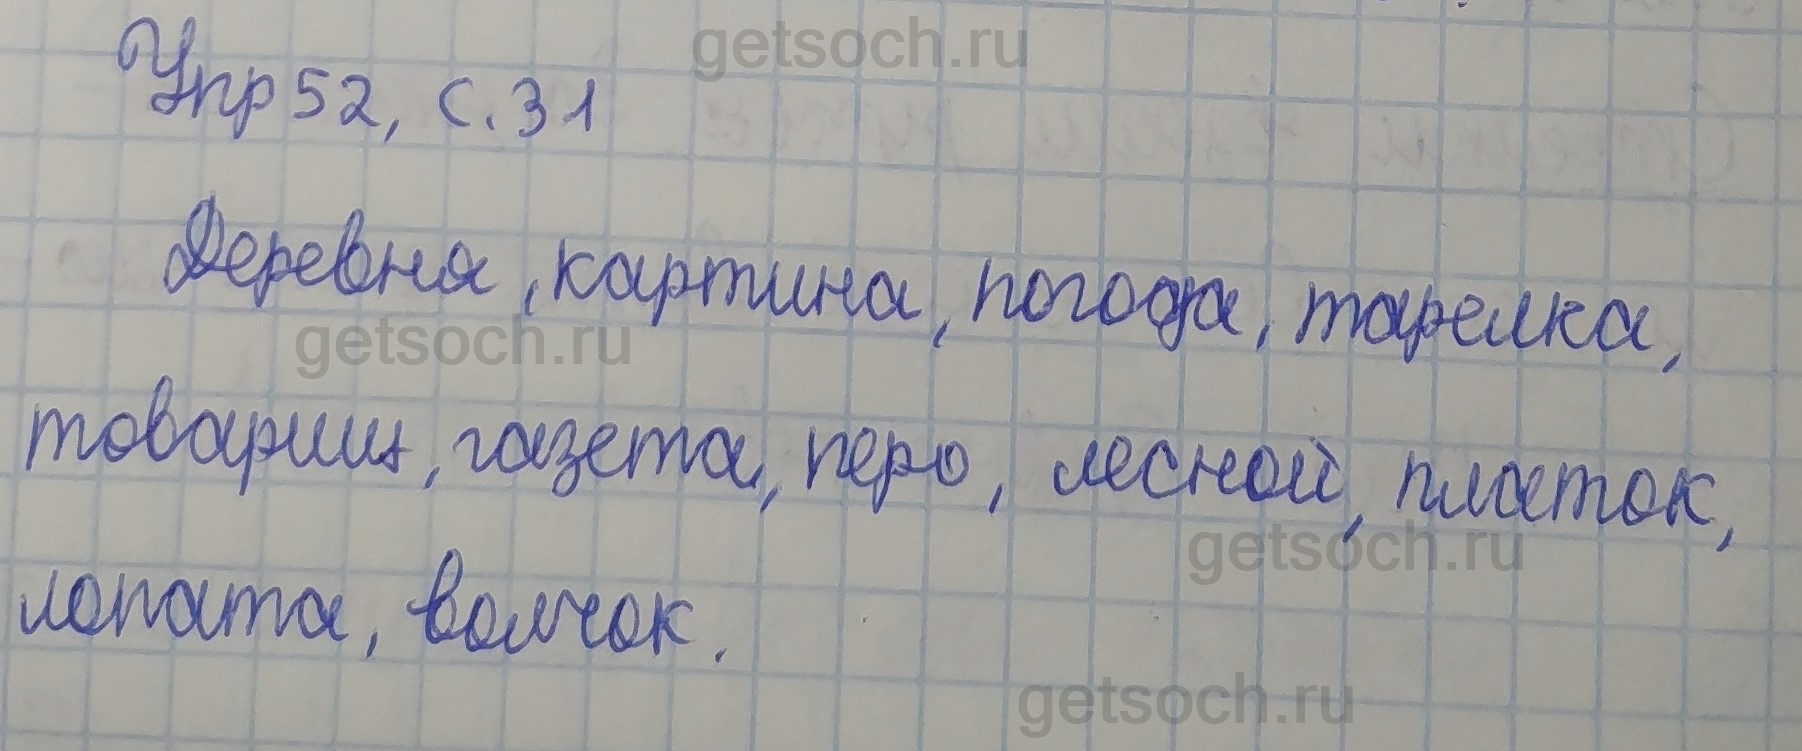 getsoch.ru
Упр 52, с. 31
Деревня, картина, погода, тарелка,
getsoch.ru
товарищ, газета, перо, лесной, платок,
getsoch.ru
лопата, волчок.
getsoch.ru